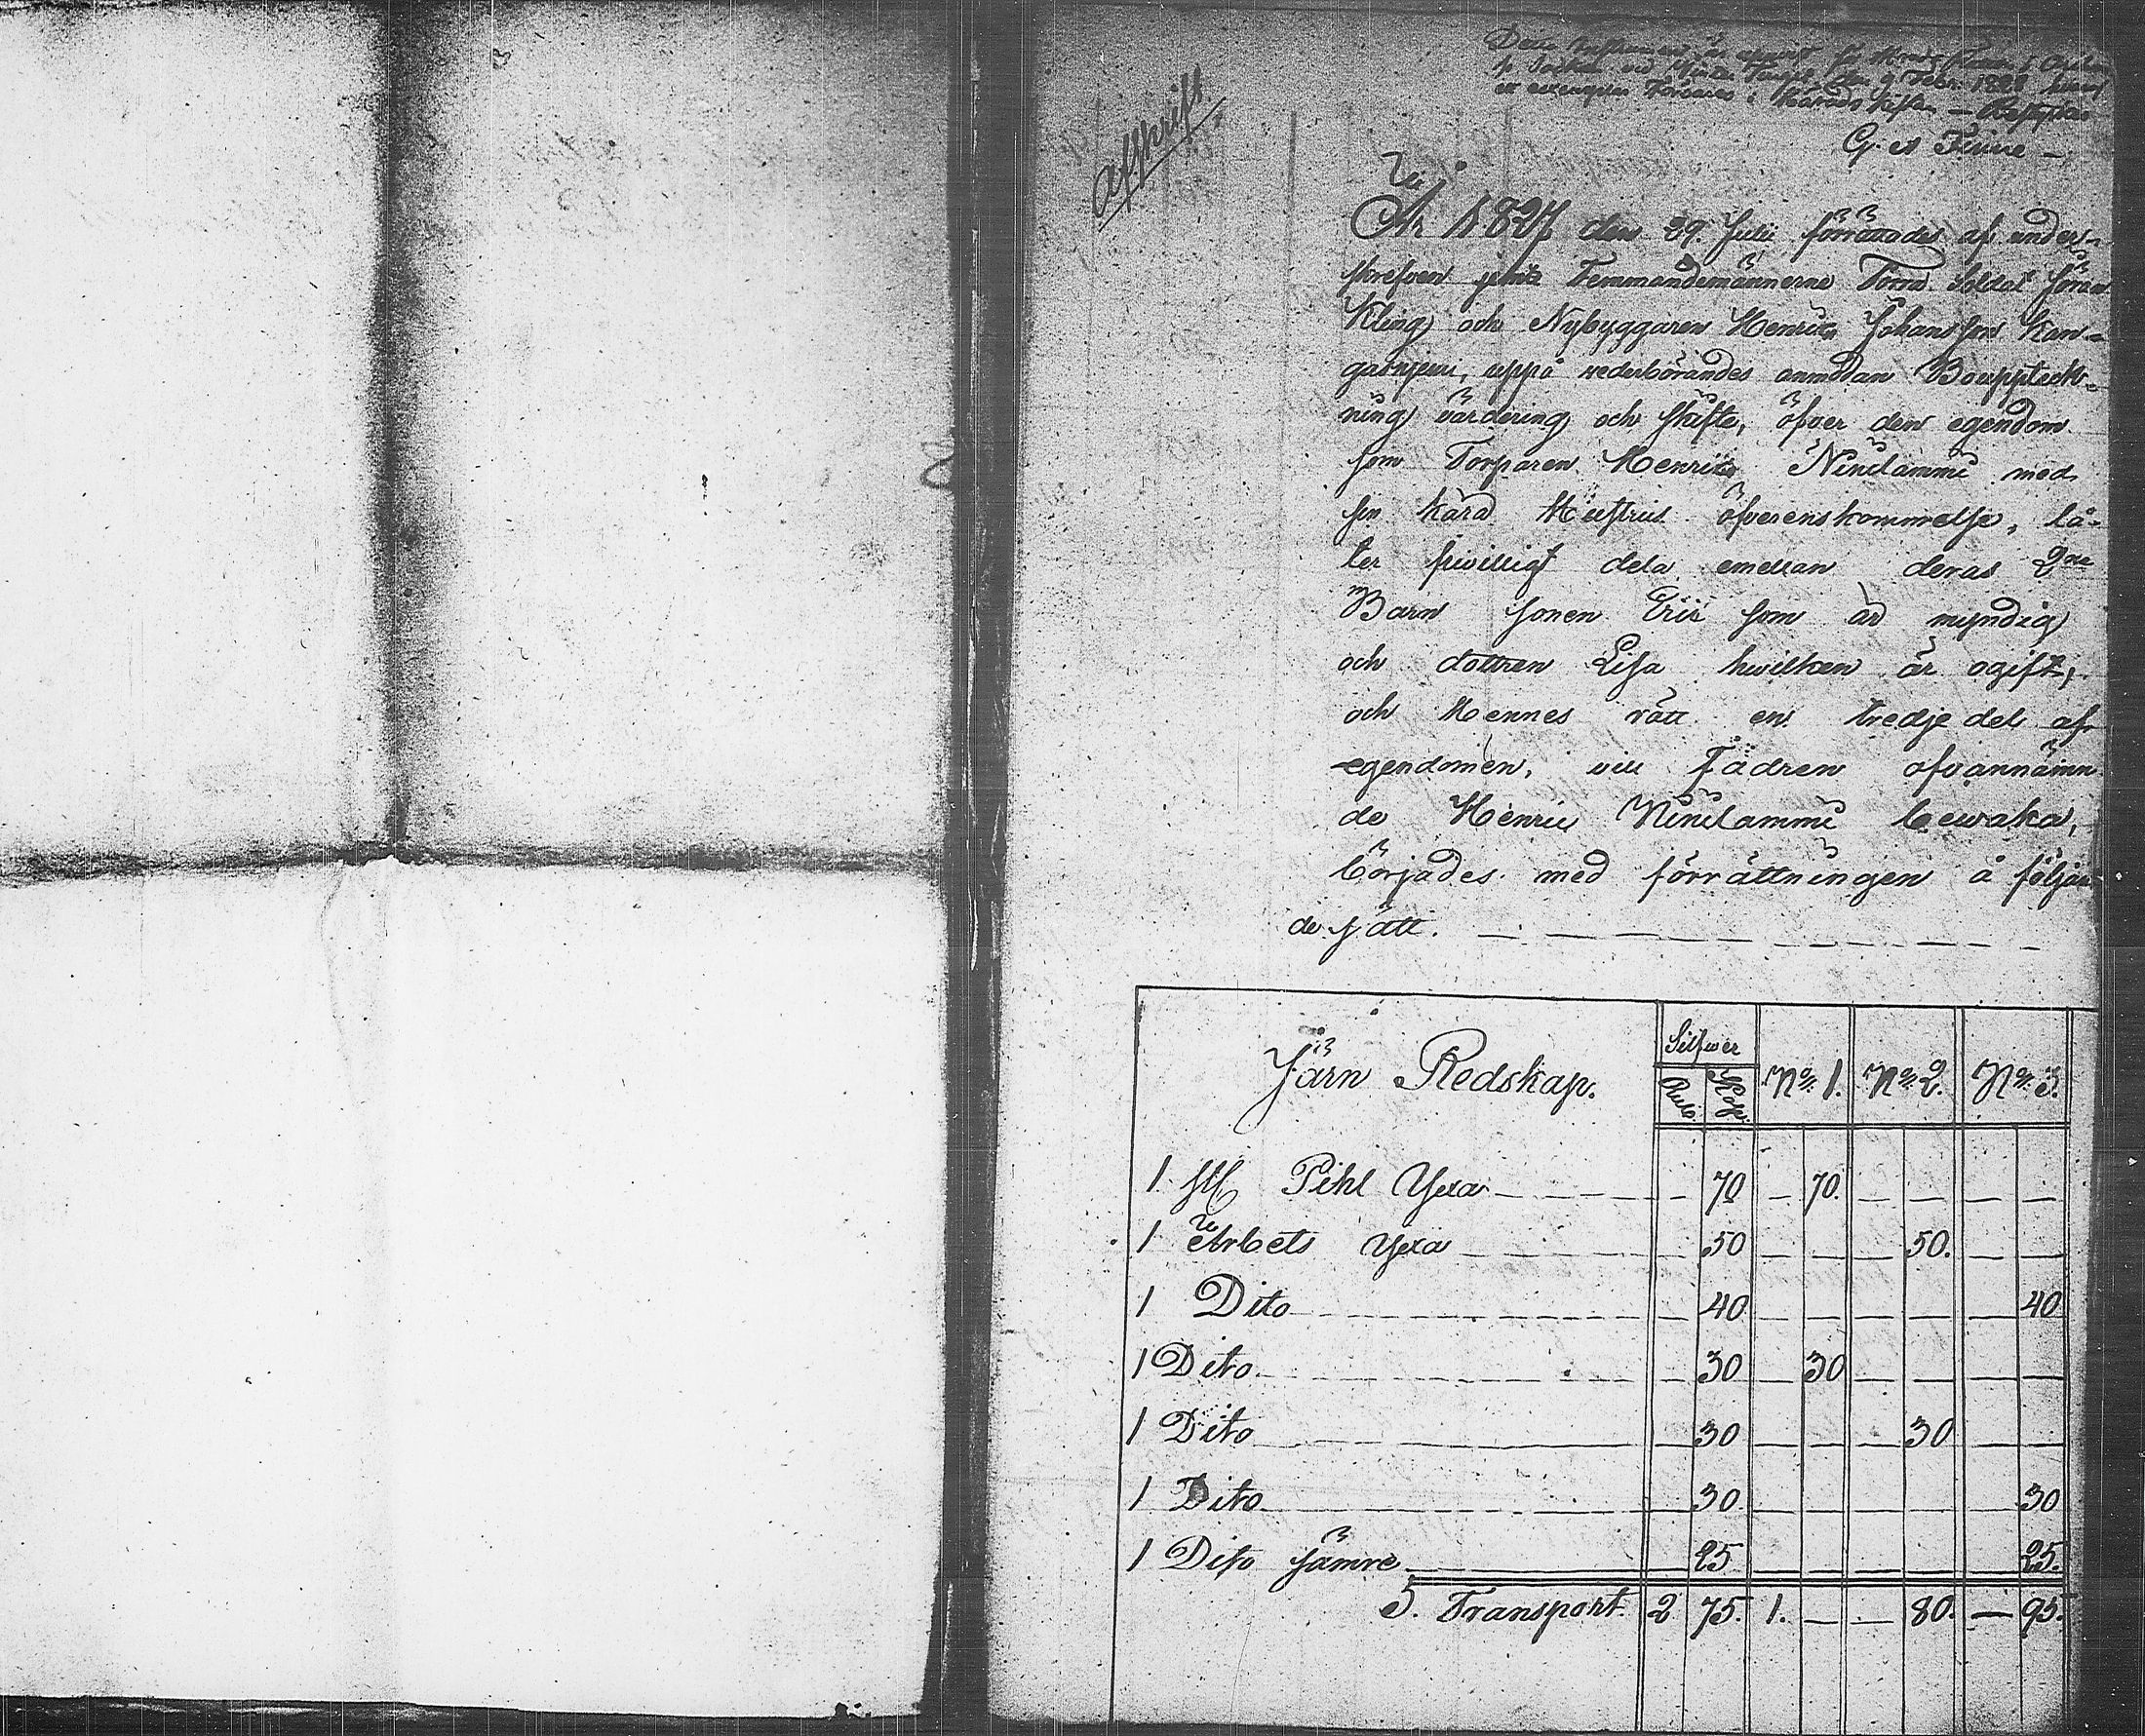 Afskrift
den 9 Febr. 1828
År 1827 den 29. Julii förrättades af under-
skrefven jemte Femmandemännerne Förra. Soldat Göran
Kling och Nybyggaren Henrik Johansson Kan-
gasnjemi, uppå vederbörandes anmodan Boupptek-
ning värdering och skifte, öfver den egendom
som Torparen Henrik Ninilammi med
sin kära Hustrus öfverenskommelse, lå-
ter friwilligt dela emellan deras 2ne
Barn sonen Eric som är myndig
och dottren Lisa hwilken är ogift,
och Hennes rätt en tredjedel af
egendomen, vill Fadren ofvannämn
de Henric Ninilammi bewaka,
börjades med förrättningen å följan-
de sätt.
Järn Redskap. Silfwer
Rub. Kop. No. 1. No. 2. No. 3.
1 st Pihl Yxa 70 70.
1 Arbets Yxa 50 50.
1 Dito 40 40
1 Dito 30 30
1 Dito 30 30
1 Dito 30 30
1 Dito sämre 25 25.
S. Transport. 2 75. 1. — — 80. — 95.